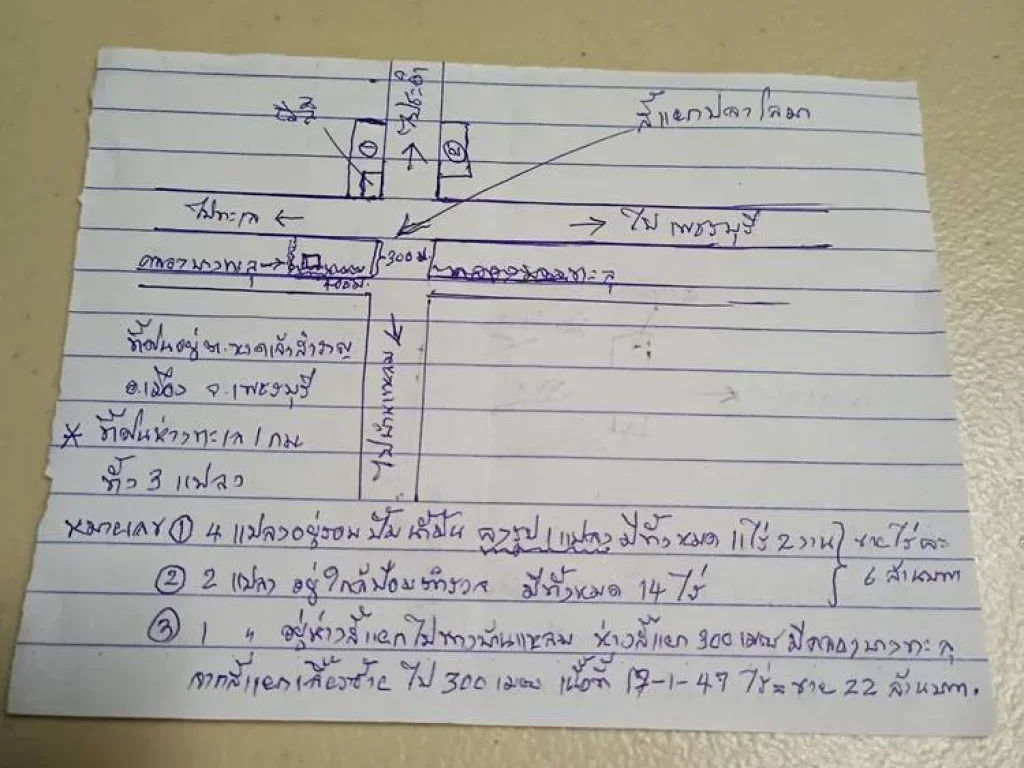 ไปชะอำ
สี่แยกปลาโลมา
①
②
ไปทะเล ←
→ ไป เพชรบุรี
คลองบางทะลุ →
300 ม.
400ม.
คลองบางทะลุ
ไปบ้านแหลม
ที่ดินอยู่ ต.หาดเจ้าสำราญ
อ.เมือง จ.เพชรบุรี
* ที่ดินห่างทะเล 1 กม
ทั้ง 3 แปลง
หมายเลข ① 4 แปลงอยู่รอบ ปั๊ม น้ำมัน ลงรูป 1 แปลง มีทั้งหมด 11 ไร่ 2 งาน ขายไร่ละ
② 2 แปลง อยู่ใกล้ป้อมตำรวจ มีทั้งหมด 14 ไร่ 6 ล้านบาท
③ 1 " อยู่ห่างสี่แยกไปทางบ้านแหลม ห่างสี่แยก 300 เมตร มีคลองบางทะลุ
จากสี่แยกเลี้ยวซ้าย ไป 300 เมตร เนื้อที่ 17-1-47 ไร่ = ขาย 22 ล้านบาท.